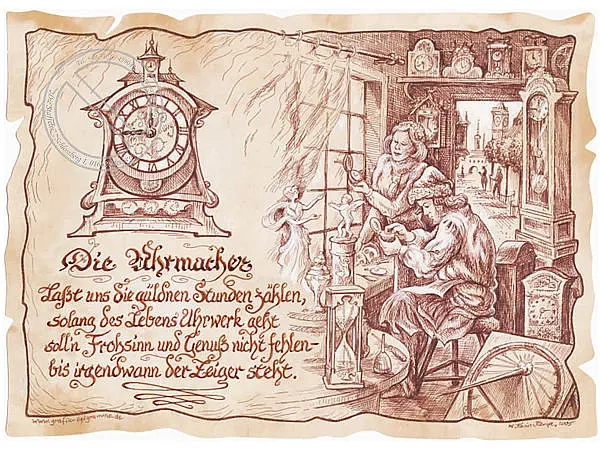 Die Uhrmacher
Laßt uns die güldnen Stunden zählen,
solang des Lebens Uhrwerk geht
soll'n Frohsinn und Genuß nicht fehlen-
bis irgendwann der Zeiger steht.
www.grafik-epigramme.de